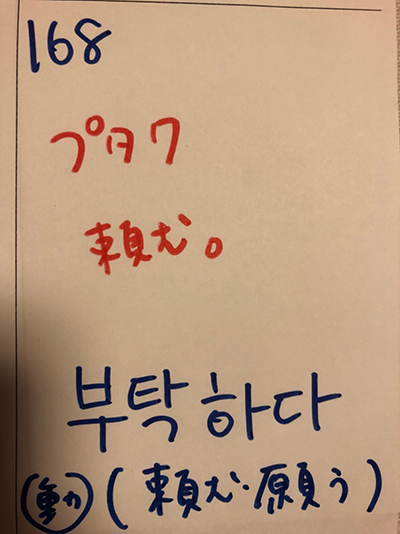 168
プタク
頼む。
부탁하다
動 (頼む・願う)